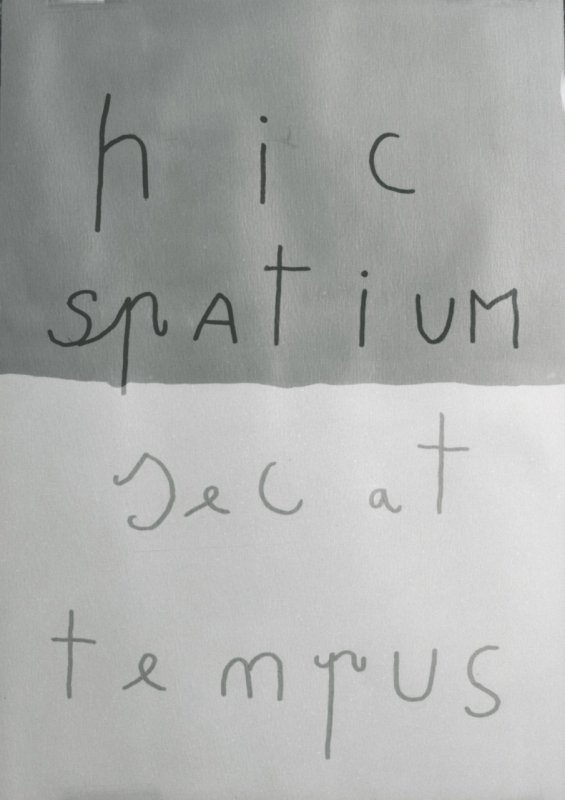 hic
spATiUM
secat
tempus